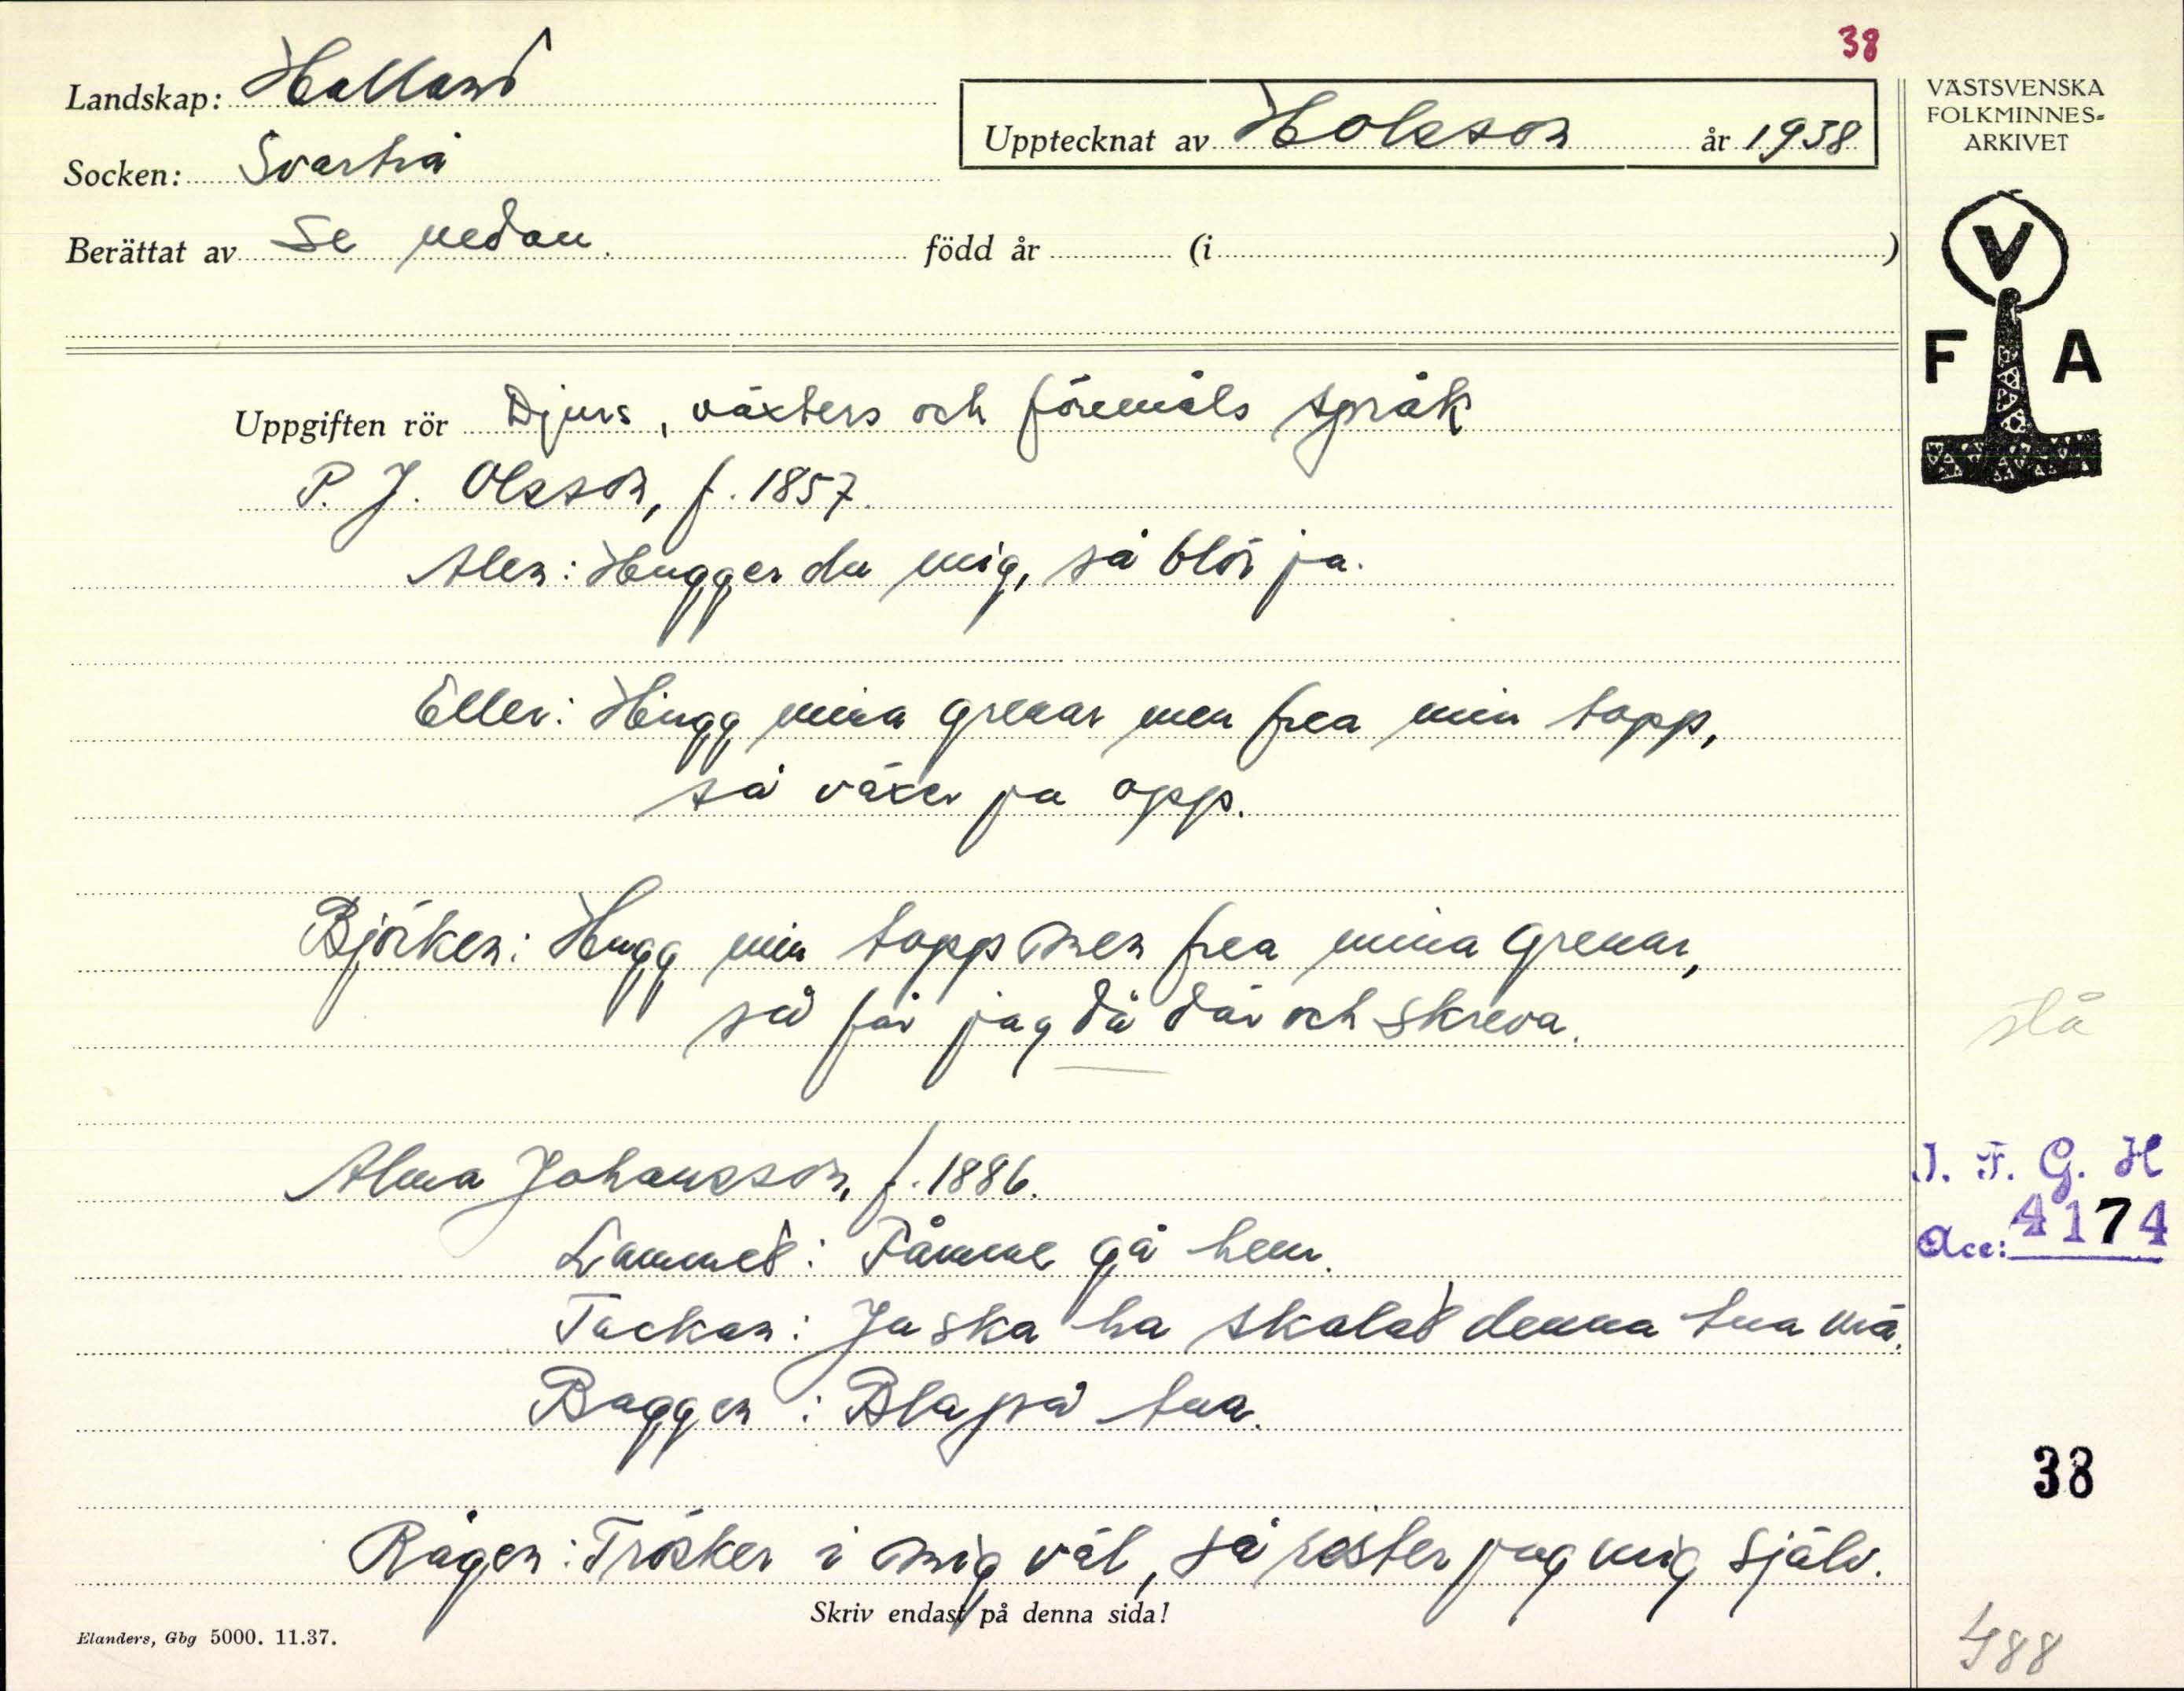 38
Landskap: Halland
Upptecknat av Holsson år 1938
VÄSTSVENSKA
FOLKMINNES-
ARKIVET
Socken: Svartrå
Berättat av Se nedan. född år (i )
V
F A
Uppgiften rör Djurs, växters och föremåls språk
P. J. Olsson, f. 1857.
Alen: Hugger du mig, så blör ja.
Eller: Hugg mina grenar men frea min topp,
så växer ja opp.
Björken: Hugg min topp men frea mina grenar,
så får jag då där och skreva.
stå
Alma Johansson, f. 1886.
J. F. G. H
Acc: 4174
Lammet: Fåmme gå hem.
Tackan: Ja ska ha skalat denna tua mä.
Baggen: Bla på tua.
38
Rågen: Trösker i mig väl, så rister jag mig själv.
Skriv endast på denna sida!
Elanders, Gbg 5000. 11.37.
488